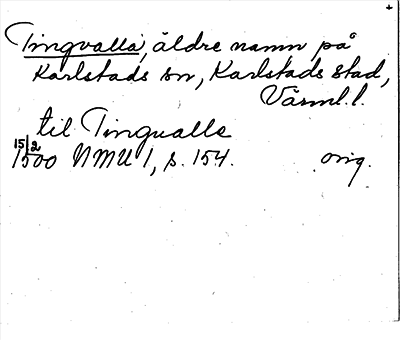 Tingvalla, äldre namn på
Karlstads sn, Karlstads stad,
Värml. l.
til Tingualla
15/2
1500 NMU 1, s. 154. orig.